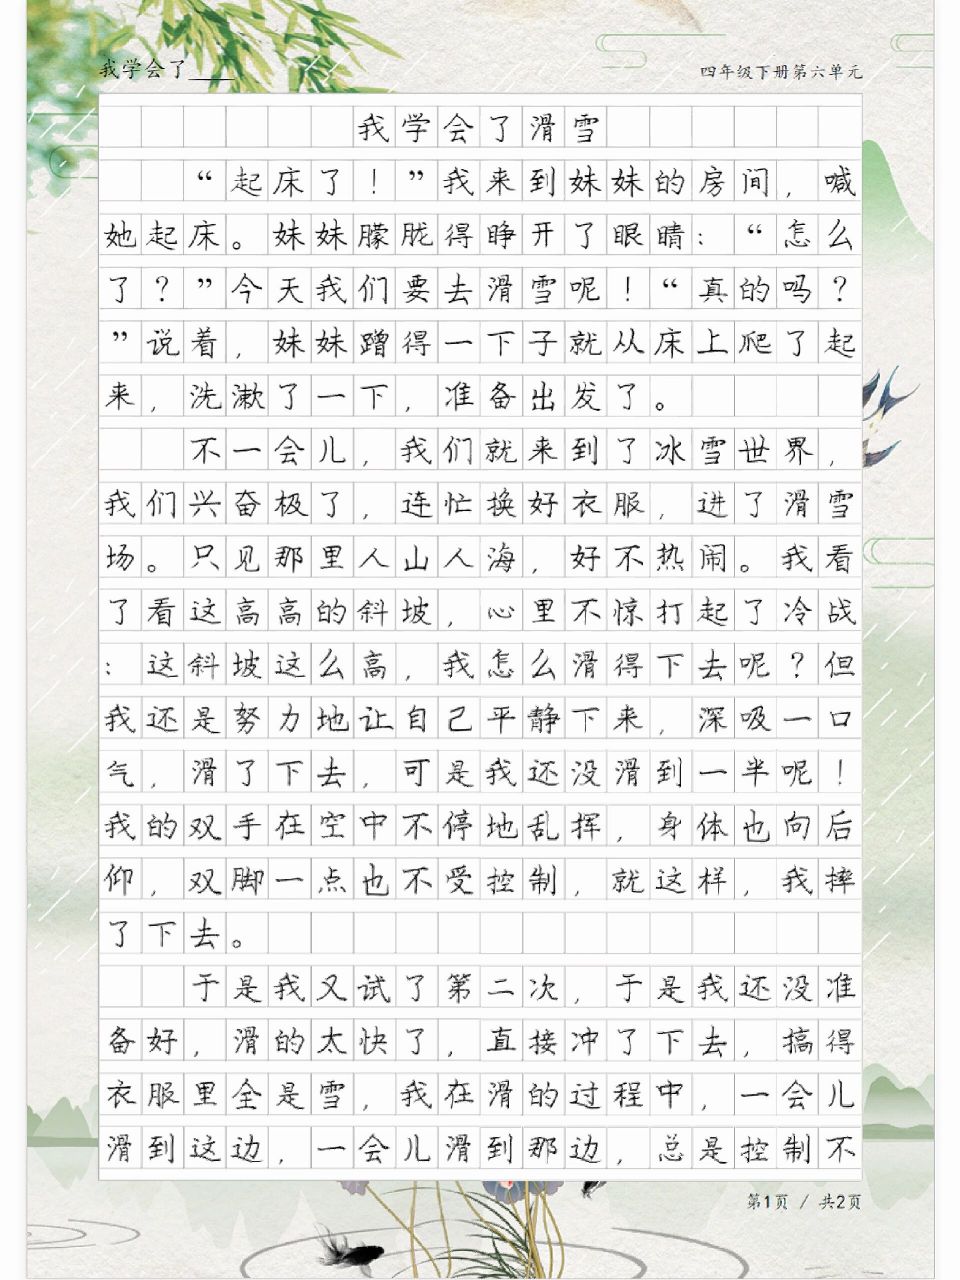 我学会了____
四年级下册第六单元
我学会了滑雪
“起床了！”我来到妹妹的房间，喊
她起床。妹妹朦胧得睁开了眼睛：“怎么
了？”今天我们要去滑雪呢！“真的吗？
”说着，妹妹蹭得一下子就从床上爬了起
来，洗漱了一下，准备出发了。
不一会儿，我们就来到了冰雪世界，
我们兴奋极了，连忙换好衣服，进了滑雪
场。只见那里人山人海，好不热闹。我看
了看这高高的斜坡，心里不惊打起了冷战
：这斜坡这么高，我怎么滑得下去呢？但
我还是努力地让自己平静下来，深吸一口
气，滑了下去，可是我还没滑到一半呢！
我的双手在空中不停地乱挥，身体也向后
仰，双脚一点也不受控制，就这样，我摔
了下去。
于是我又试了第二次，于是我还没准
备好，滑的太快了，直接冲了下去，搞得
衣服里全是雪，我在滑的过程中，一会儿
滑到这边，一会儿滑到那边，总是控制不
第1页 / 共2页